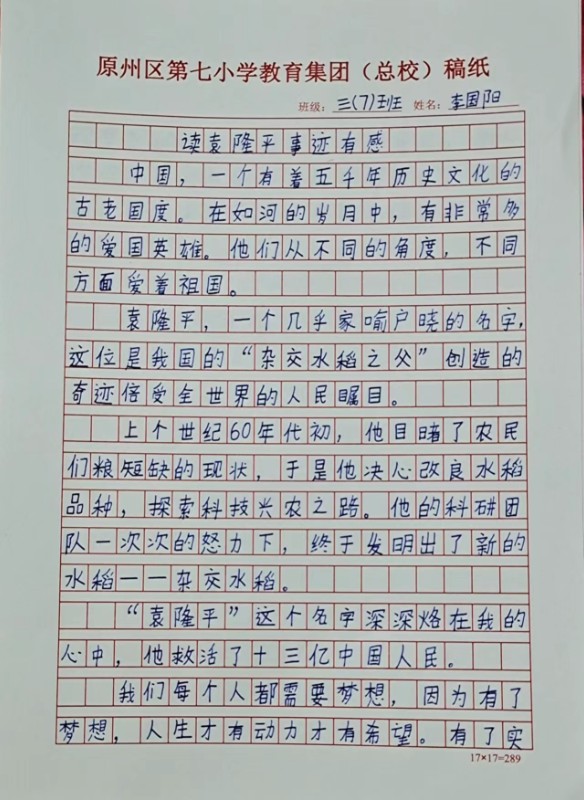 原州区第七小学教育集团（总校）稿纸
班级：三(7)班 姓名：李国阳
读袁隆平事迹有感
中国，一个有着五千年历史文化的
古老国度。在如河的岁月中，有非常多
的爱国英雄。他们从不同的角度，不同
方面爱着祖国。
袁隆平，一个几乎家喻户晓的名字，
这位是我国的“杂交水稻之父”创造的
奇迹倍受全世界的人民瞩目。
上个世纪60年代初，他目睹了农民
们粮短缺的现状，于是他决心改良水稻
品种，探索科技兴农之路。他的科研团
队一次次的努力下，终于发明出了新的
水稻一一杂交水稻。
“袁隆平”这个名字深深烙在我的
心中，他救活了十三亿中国人民。
我们每个人都需要梦想，因为有了
梦想，人生才有动力才有希望。有了实
17×17=289